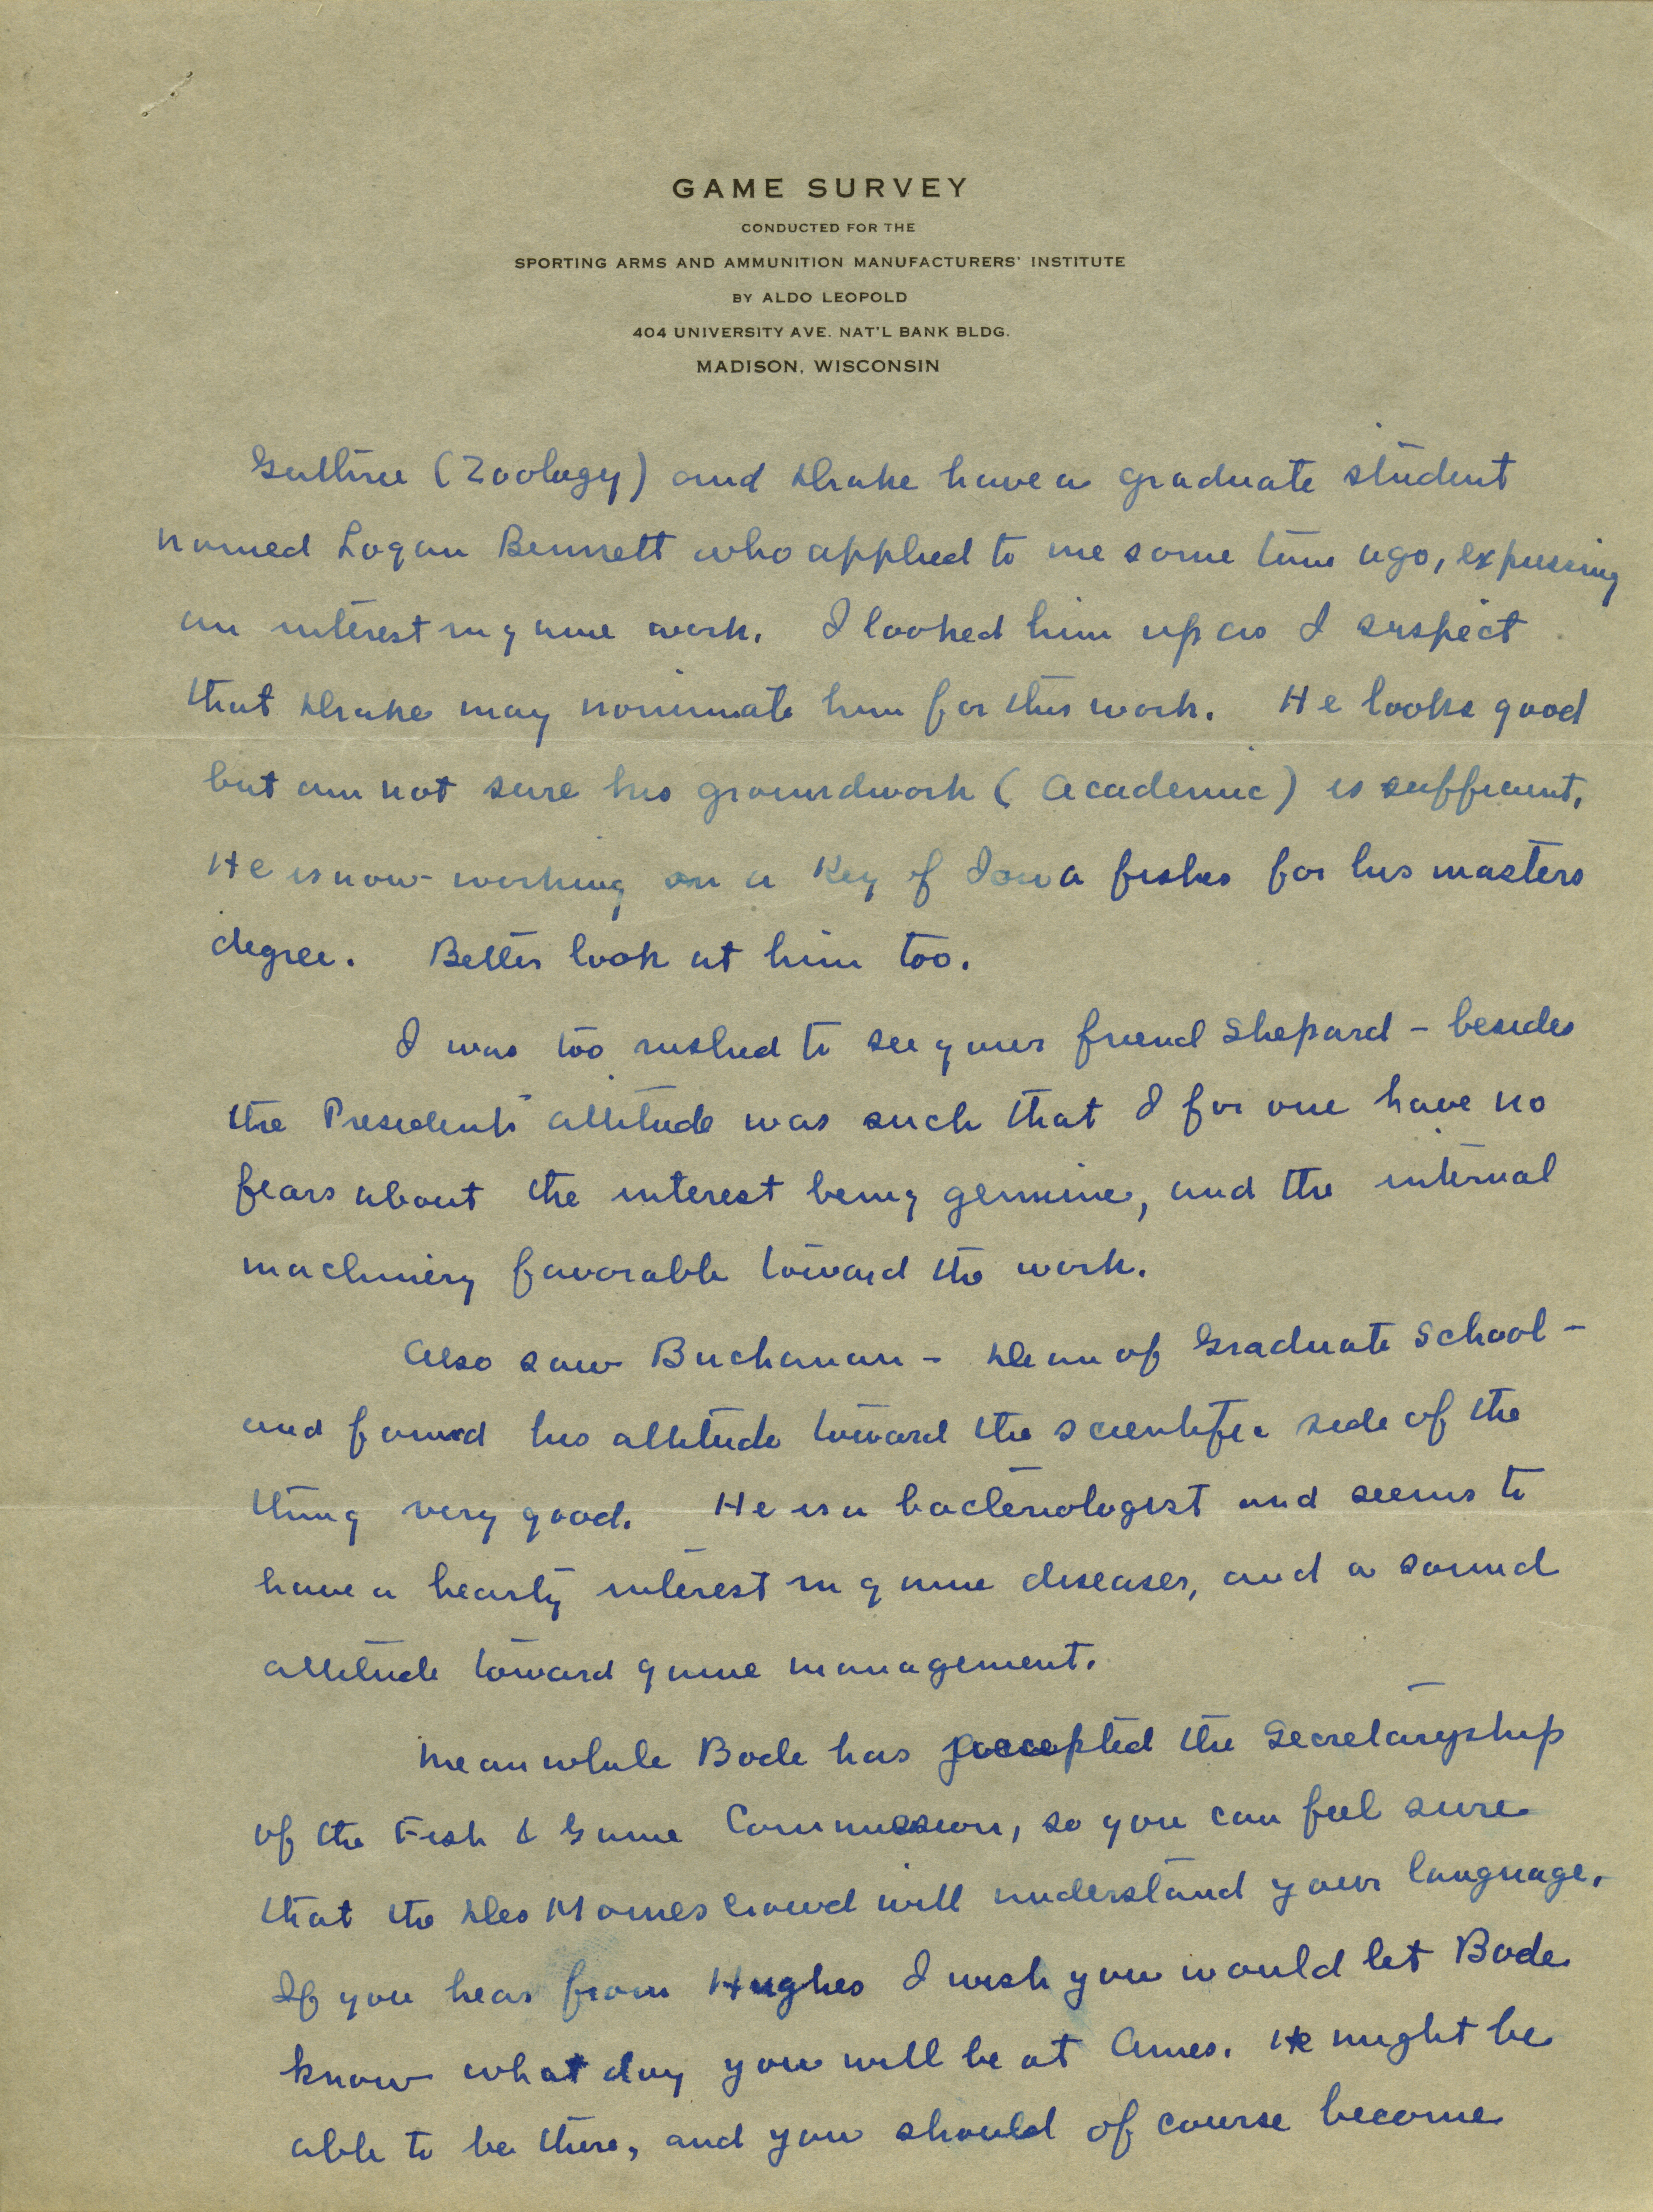 GAME SURVEY
CONDUCTED FOR THE
SPORTING ARMS AND AMMUNITION MANUFACTURERS' INSTITUTE
BY ALDO LEOPOLD
404 UNIVERSITY AVE. NAT'L BANK BLDG.
MADISON, WISCONSIN
Guthrie (Zoology) and Drake have a graduate student
named Logan Bennett who applied to me some time ago, expressing
an interest in game work. I looked him up as I suspect
that Drake may nominate him for this work. He looks good
but am not sure his groundwork (academic) is sufficient.
He is now working on a Key of Iowa fishes for his masters
degree. Better look at him too.
I was too rushed to see your friend Shepard - besides
the Presidents' attitude was such that I for one have no
fears about the interest being genuine, and the internal
machinery favorable toward the work.
Also saw Buchanan - Dean of Graduate School -
and found his attitude toward the scientific side of the
thing very good. He is a bacteriologist and seems to
have a hearty interest in game diseases, and a sound
attitude toward game management.
Meanwhile Bode has accepted the Secretaryship
of the Fish & Game Commission, so you can feel sure
that the Des Moines crowd will understand your language.
If you hear from Hughes I wish you would let Bode
know what day you will be at Ames. He might be
able to be there, and you should of course become